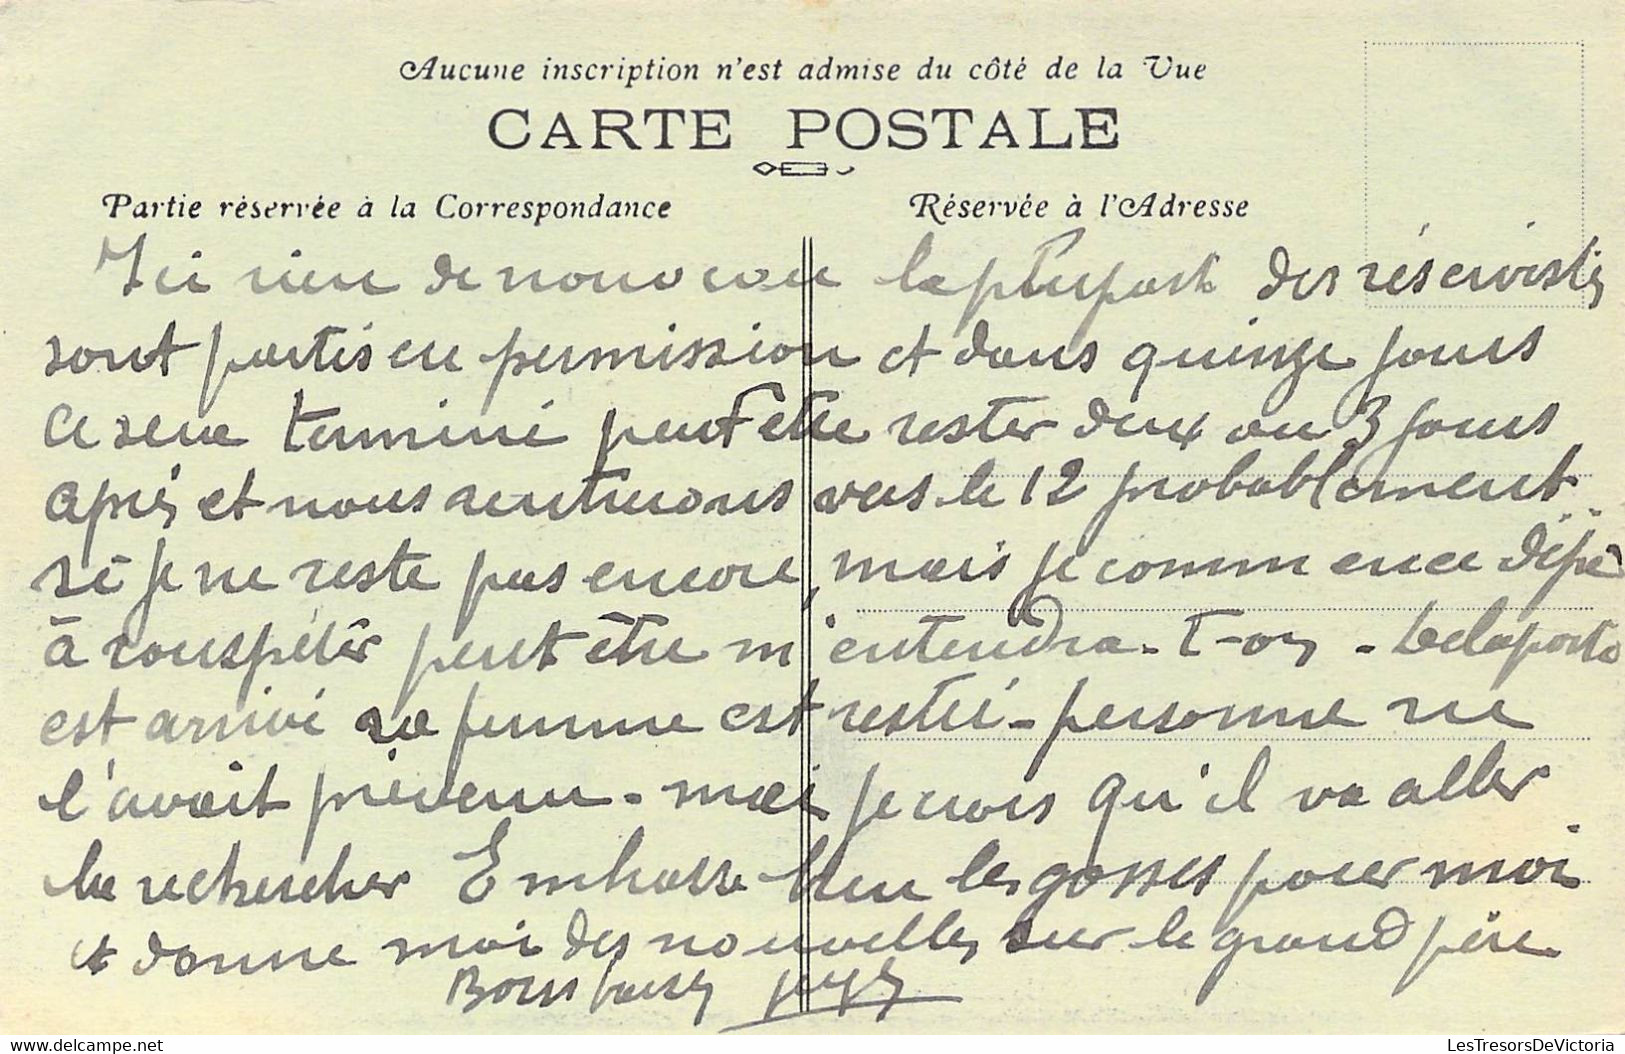 Aucune inscription n'est admise du côté de la Vue
CARTE POSTALE
Partie réservée à la Correspondance
Réservée à l'Adresse
Ici rien de nouveau la plupart des réservistes
sont partis en permission et dans quinze jours
ce sera terminé peut etre rester deux ou 3 jours
après et nous rentrerons vers le 12 probablement
si je ne reste pas encore, mais je commence déjà
à rouspéter peut être m'entendra-t-on - Delaporte
est arrivé sa femme est restée - personne ne
l'avait prévenu - mais je crois qu'il va aller
la rechercher Embrasse bien les gosses pour moi
et donne moi des nouvelles sur le grand père
Bons baisers
LesTresorsDeVictoria
https://www.delcampe.net